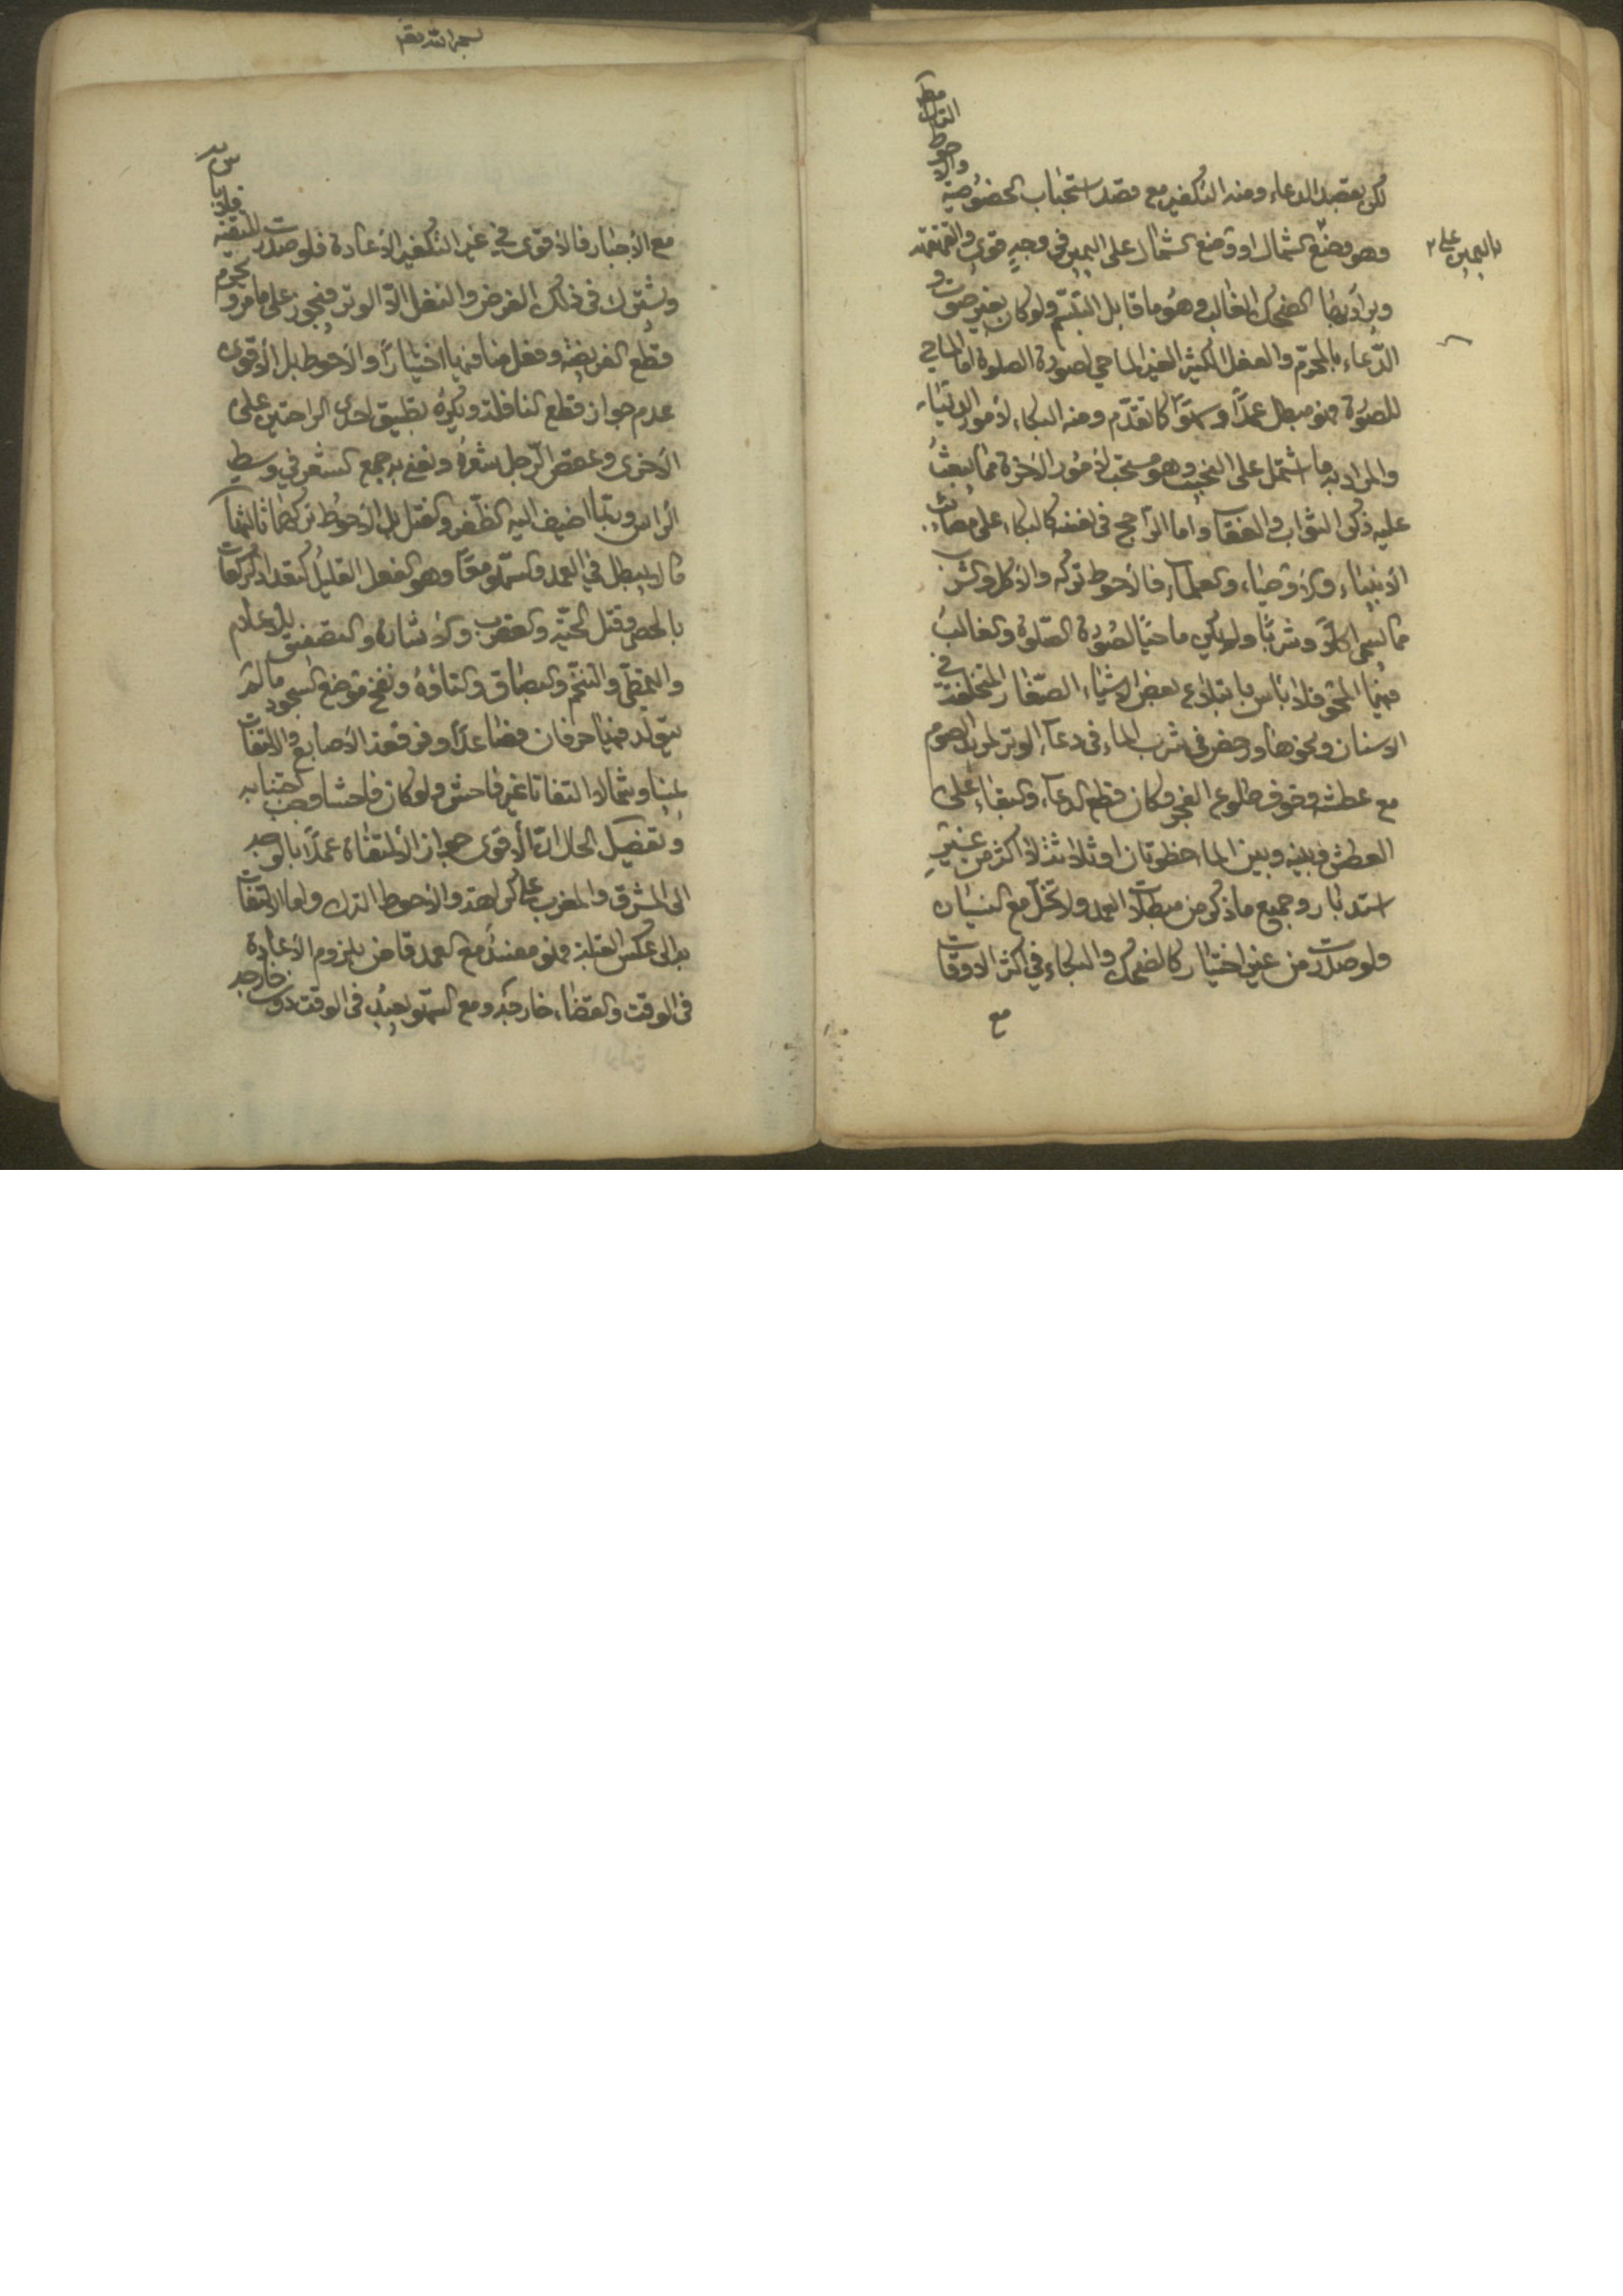 لكن بقصد الدعاء ومنه التكفير مع قصد استحباب الخصوصية والاحوط الترك مطلقا
وهو وضع الشمال او وضع الشمال على اليمين في وجه قوي والقهقهة
باليمين على
ويراد بها الضحك الغالب وهو ما قابل التبسم ولو كان بغير صوت و
الدعاء بالمحرم والفعل الكثير الغير الماحي لصورة الصلوة اما الماحي
للصورة فهو مبطل عمدا وسهوا كما تقدم ومنه البكاء لأمور الدنيا
والمراد به ما اشتمل على النحيب وهو مستحب لأمور الآخرة مما يبعث
عليه ذكر الثواب والعقاب واما الراجح في نفسه كالبكاء على مصائب
الأنبياء والأوصياء والعلماء فالأحوط تركه والأكل والشرب
مما يسمى اكلا وشربا ولم يكن ماحيا لصورة الصلوة والغالب
فيهما المحو فلا بأس بابتلاع بعض الاشياء الصغار المتخلفة في
الاسنان ونحوها ورخص في شرب الماء في دعاء الوتر لمريد الصوم
مع عطشه وخوف طلوع الفجر وكان قطع الدعاء والبقاء على
العطش وبينه وبين الماء خطوتان او ثلاثة لا اكثر من غير
استدبار وجميع ما ذكر من مبطلات العمد ولا تخل مع النسيان
ولو صدرت من غير اختيار كالضحك والبكاء في اكثر الاوقات
مع
مع الأجبار فالأقوى في غير التكفير الأعادة فلو صدرت للتقية فلا بأس به
ويشترك في ذلك الفرض والنفل الا الوتر فيجوز على ما مر ويحرم
قطع الفريضة وفعل منافيها اختيارا والأحوط بل الأقوى
عدم جواز قطع النافلة ويكره تطبيق احدى الراحتين على
الأخرى وعقص الرجل شعره ونعني به جمع الشعر في وسط
الرأس وربما اضيف اليه الظفر والفتل بل الأحوط تركهما ثالثها
ما لا يبطل في العمد والسهو معا وهو الفعل القليل كتعداد الركعات
بالحصى وقتل الحية والعقرب والأشارة والتصفيق للأعلام
والتمطي والتنخم والبصاق والتأوه ونفخ موضع السجود ما لم
يتولد فيها حرفان فصاعدا وفرقعة الأصابع والالتفات
يمينا وشمالا التفاتا غير فاحش ولو كان فاحشا وجب اجتنابه
وتفصيل الحال ان الأقوى جواز الألتفات عمدا بالوجه
الى المشرق والمغرب على كراهة والأحوط الترك واما الالتفات
به الى عكس القبلة فهو مفسد مع العمد قاض بلزوم الأعادة
في الوقت والقضاء خارجه ومع السهو يعيد في الوقت دون خارجه